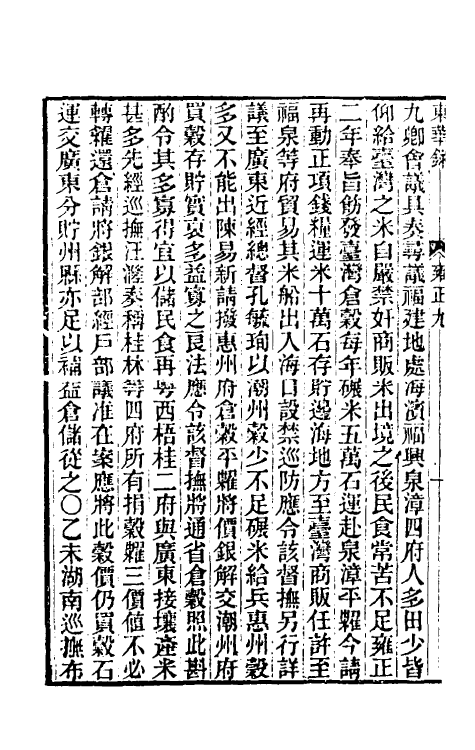 東華錄 雍正九
九卿會議具奏尋議福建地處海濱福興泉漳四府人多田少皆
仰給臺灣之米自嚴禁奸商販米出境之後民食常苦不足雍正
二年奉旨飭發臺灣倉穀每年碾米五萬石運赴泉漳平糶今請
再動正項錢糧運米十萬石存貯邊海地方至臺灣商販任許至
福泉等府貿易其米船出入海口設禁巡防應令該督撫另行詳
議至廣東近經總督孔毓珣以潮州穀少不足碾米給兵惠州穀
多又不能出陳易新請撥惠州府倉穀平糶將價銀解交潮州府
買穀存貯實裒多益寡之良法應令該督撫將通省倉穀照此斟
酌令其多寡得宜以儲民食再粵西梧桂二府與廣東接壤產米
甚多先經巡撫汪漋奏稱桂林等四府所有捐穀糶三價値不必
轉糴還倉請將銀解部經戶部議准在案應將此穀價仍買穀石
運交廣東分貯州縣亦足以補益倉儲從之〇乙未湖南巡撫布